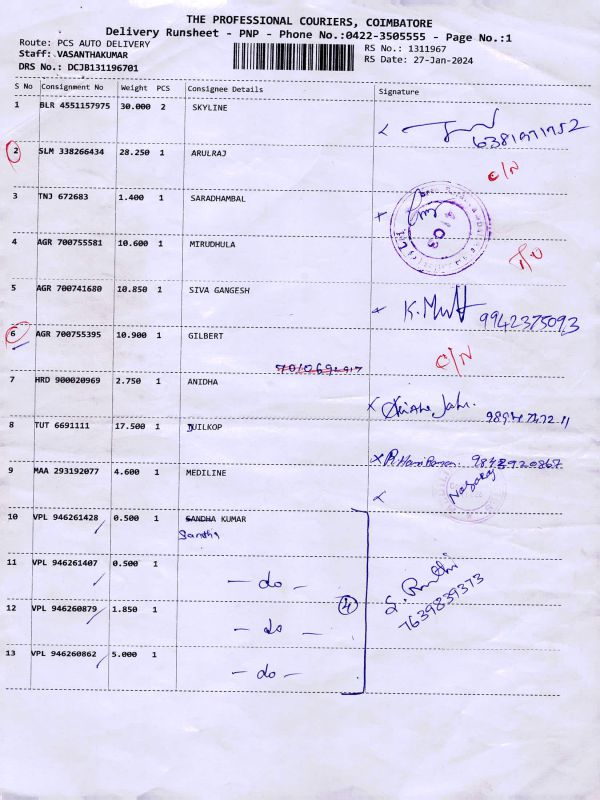 THE PROFESSIONAL COURIERS, COIMBATORE
Delivery Runsheet - PNP - Phone No.:0422-3505555 - Page No.:1
Route: PCS AUTO DELIVERY
RS No.: 1311967
Staff: VASANTHAKUMAR
RS Date: 27-Jan-2024
DRS No.: DCJB131196701
S No Consignment No Weight PCS Consignee Details Signature
1 BLR 4551157975 30.000 2 SKYLINE
6381971752
2 SLM 338266434 28.250 1 ARULRAJ
C/N
3 TNJ 672683 1.400 1 SARADHAMBAL
4 AGR 700755581 10.600 1 MIRUDHULA
5 AGR 700741680 10.850 1 SIVA GANGESH
9942375093
6 AGR 700755395 10.900 1 GILBERT
C/N
7 HRD 900020969 2.750 1 ANIDHA
8 TUT 6691111 17.500 1 DUILKOP
9848920867
9 MAA 293192077 4.600 1 MEDILINE
Nagaraj
10 VPL 946261428 0.500 1 SANDHA KUMAR
Sandha
11 VPL 946261407 0.500 1
- do -
12 VPL 946260879 1.850 1
- do -
4
7639839373
13 VPL 946260862 5.000 1
- do -